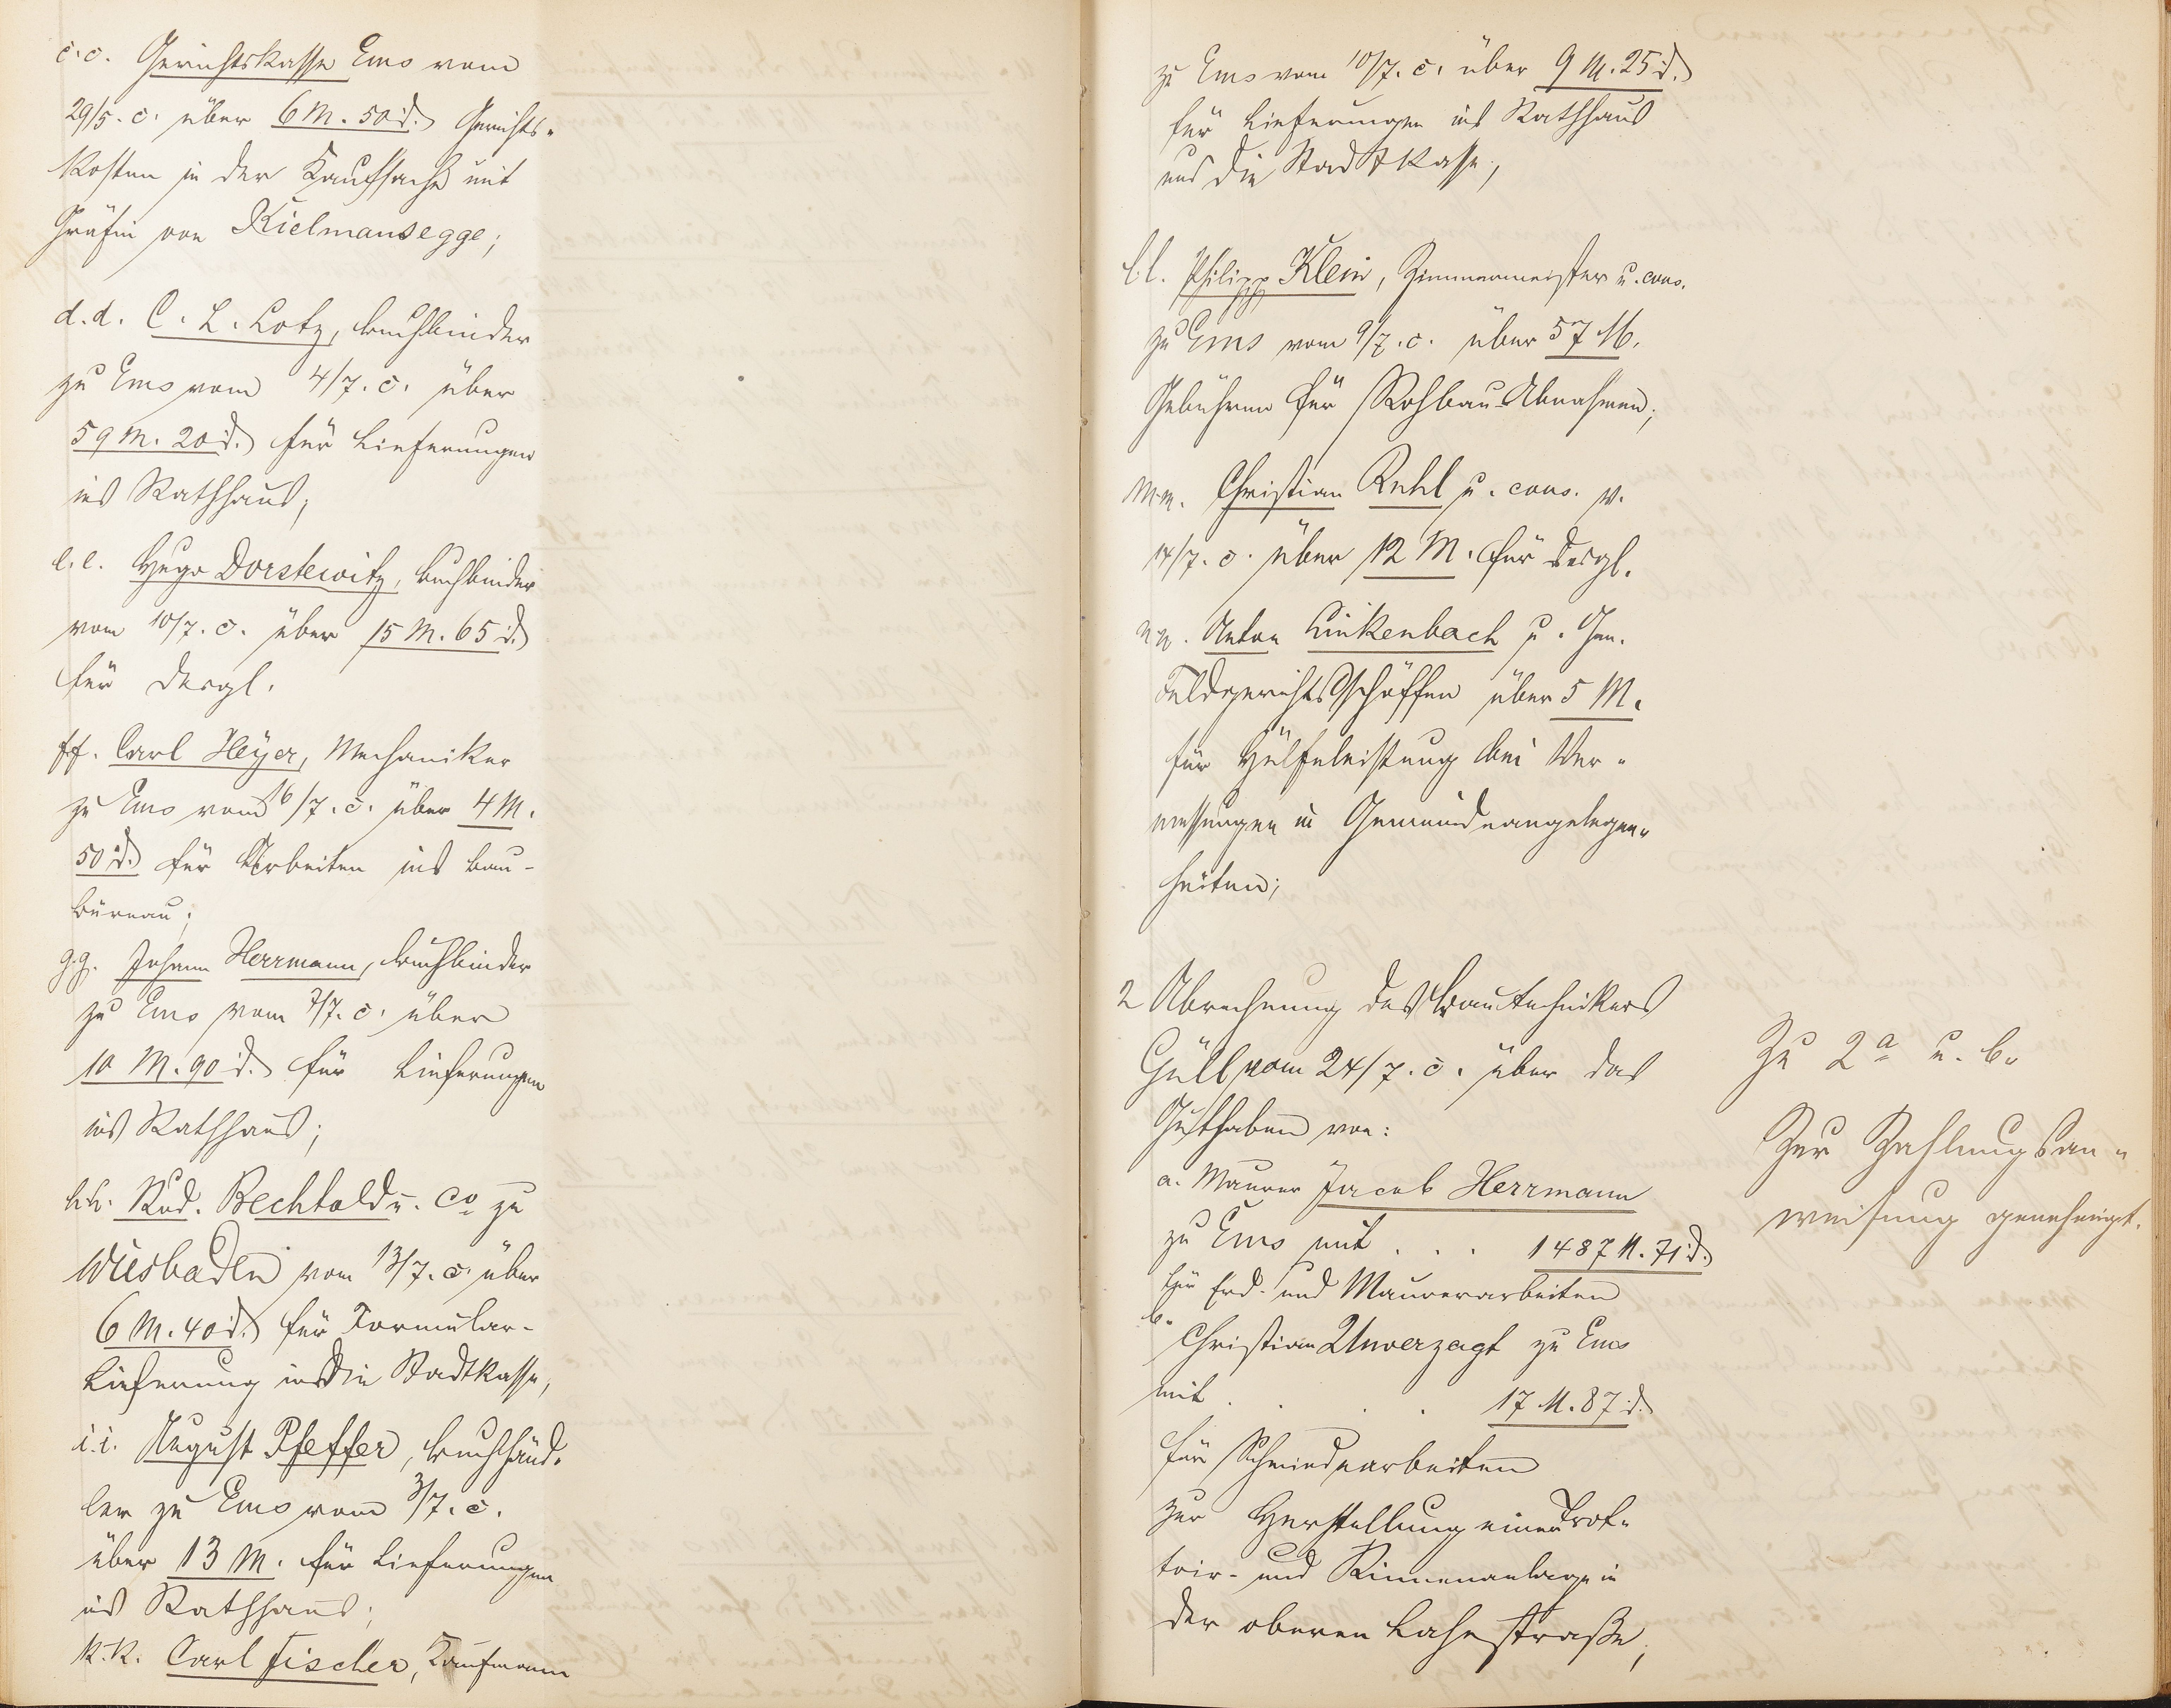 c.c. Gerichtskasse Ems vom
29/5. c. über 6 M. 50 d. Gerichts-
kosten in der Kaufsache mit
Gräfin von Kielmansegge;
d.d. C. L. Lotz, Buchbinder
zu Ems vom 4/7. c. über
59 M. 20 d. für Lieferungen
ins Rathhaus;
e.e. Hugo Dorstewitz, Buchbinder
vom 10/7. c. über 15 M. 65 d.
für desgl.
ff. Carl Heyer, Mechaniker
zu Ems vom 16/7. c. über 4 M.
50 d. für Arbeiten ins Bau-
büreau;
g.g. Johann Herrmann, Buchbinder
zu Ems vom 7/7. c. über
10 M. 90 d. für Lieferungen
ins Rathhaus;
h.h. Rud. Bechtold u. Co zu
Wiesbaden vom 13/7. c. über
6 M. 40 d. für Formular-
Lieferung in die Stadtkasse,
i.i. August Pfeffer, Buchhänd-
ler zu Ems vom 3/7. c.
über 13 M. für Lieferungen
ins Rathhaus;
k.k. Carl Fischer, Kaufmann
zu Ems vom 10/7. c. über 9 M. 25 d.
für Lieferungen ins Rathhaus
und die Stadtkasse,
l.l. Philipp Klein, Zimmermeister u. cons.
zu Ems vom 9/7. c. über 57 M.
Gebühren für Rohbau-Abnahmen;
m.m. Christian Ruhl u. cons. v.
14/7. c. über 12 M. für desgl.
n.n. Anton Linkenbach u. Gen.
Feldgerichtsschöffen über 5 M.
für Hülfeleistung bei Ver-
messungen in Gemeindeangelegen-
heiten;
2 Abrechnung des Bautechnikers
Güll vom 24/7. c. über das
Guthaben von:
a. Maurer Jacob Herrmann
zu Ems mit . . . 1487 M. 71 d.
für Erd- und Maurerarbeiten
b.
Christian Unverzagt zu Ems
mit . . . . 17 M. 87 d.
für Schmiedearbeiten
zur Herstellung einer Trot-
toir- und Rinnenanlage in
der oberen Lahnstraße;
Zu 2a u. b.
Zur Zahlungsan-
weisung genehmigt.